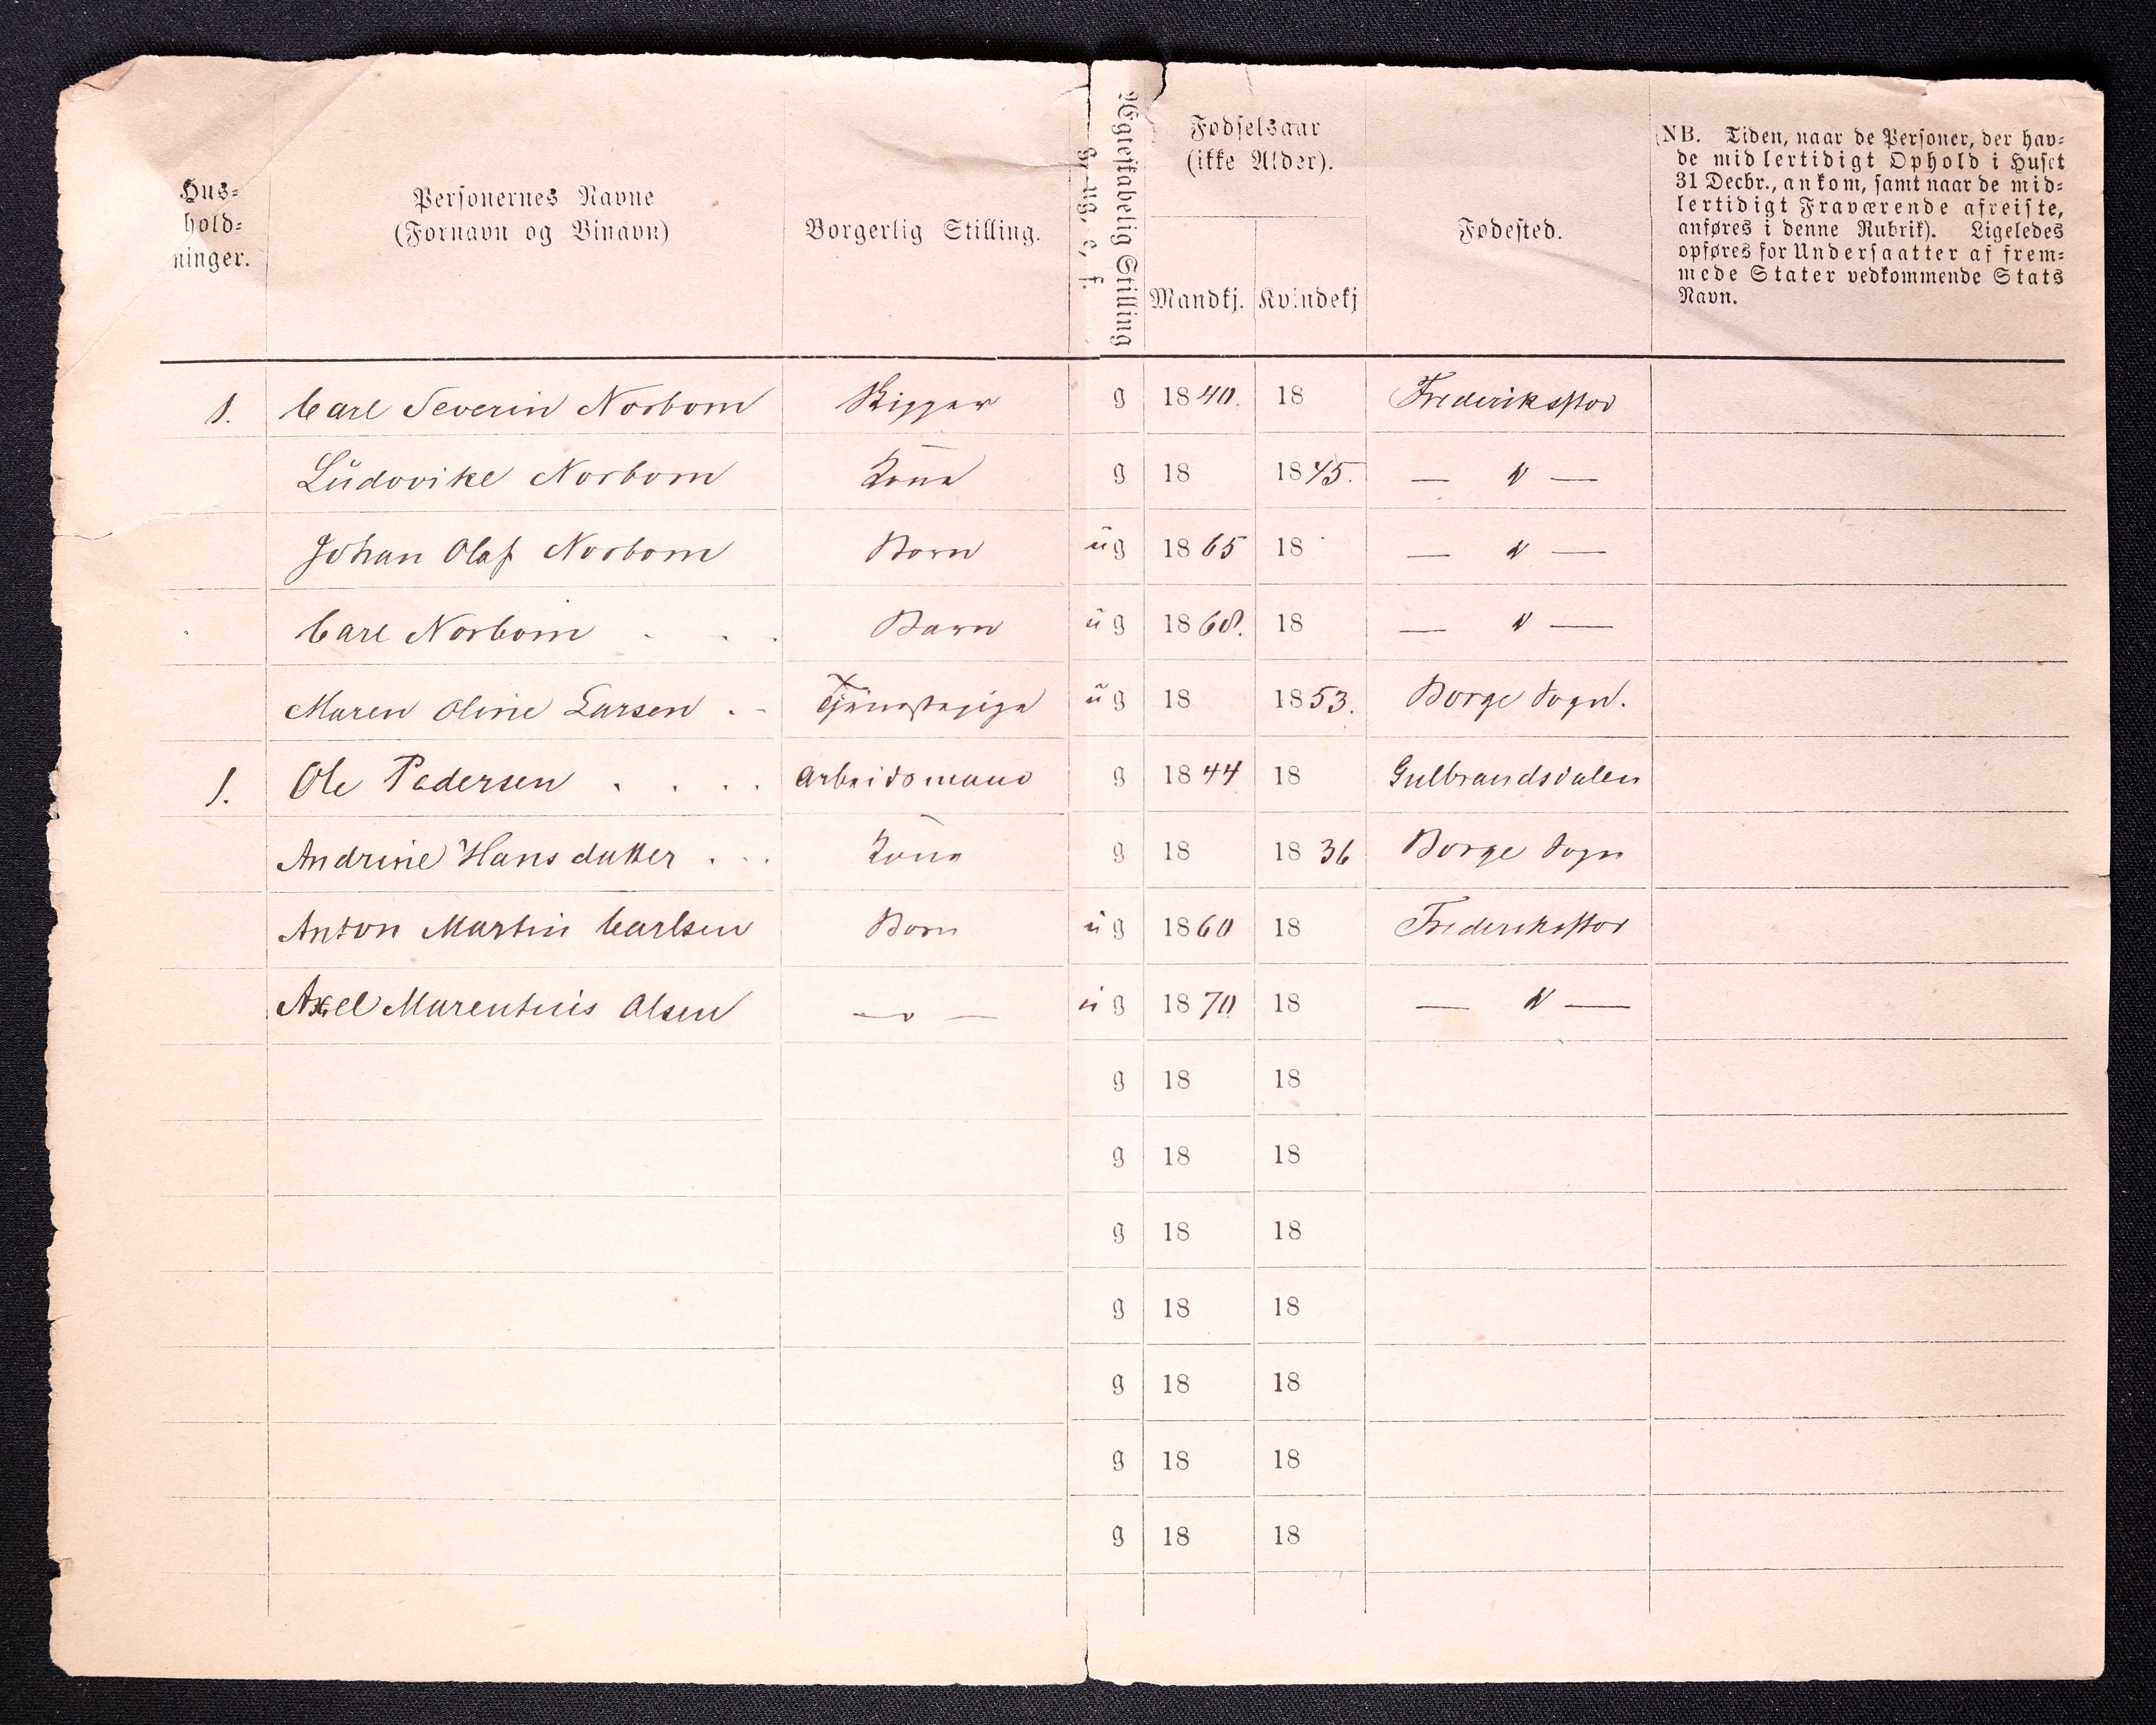 Hus-
hold-
ninger.
Personernes Navne
(Fornavn og Binavn)
Borgerlig Stilling.
Ægteskabelig Stilling
g, ug, e, f.
Fødselsaar
(ikke Alder).
Mandkj. Kvindekj
Fødested.
(NB. Tiden, naar de Personer, der hav-
de midlertidigt Ophold i Huset
31 Decbr., ankom, samt naar de mid-
lertidigt Fraværende afreiste,
anføres i denne Rubrik). Ligeledes
opføres for Undersaatter af frem-
mede Stater vedkommende Stats
Navn.
1. Carl Severin Norbom Skipper g 1840. 18 Frederiksstad
Ludovike Norbom Kone g 18 1845. — " —
Johan Olaf Norbom Barn ug 1865 18 — " —
Carl Norbom . . . Barn ug 1868. 18 — " —
Maren Oline Larsen . - Tjenestepige ug 18 1853. Borge Sogn.
1. Ole Pedersen . . . . Arbeidsmand g 1844 18 Gulbrandsdalen
Andrine Hansdatter . . . Kone g 18 1836 Borge Sogn
Anton Martin Carlsen Barn ug 1860 18 Frederiksstad
Axel Marentius Olsen — " — ug 1870. 18 — " —
g 18 18
g 18 18
g 18 18
g 18 18
g 18 18
g 18 18
g 18 18